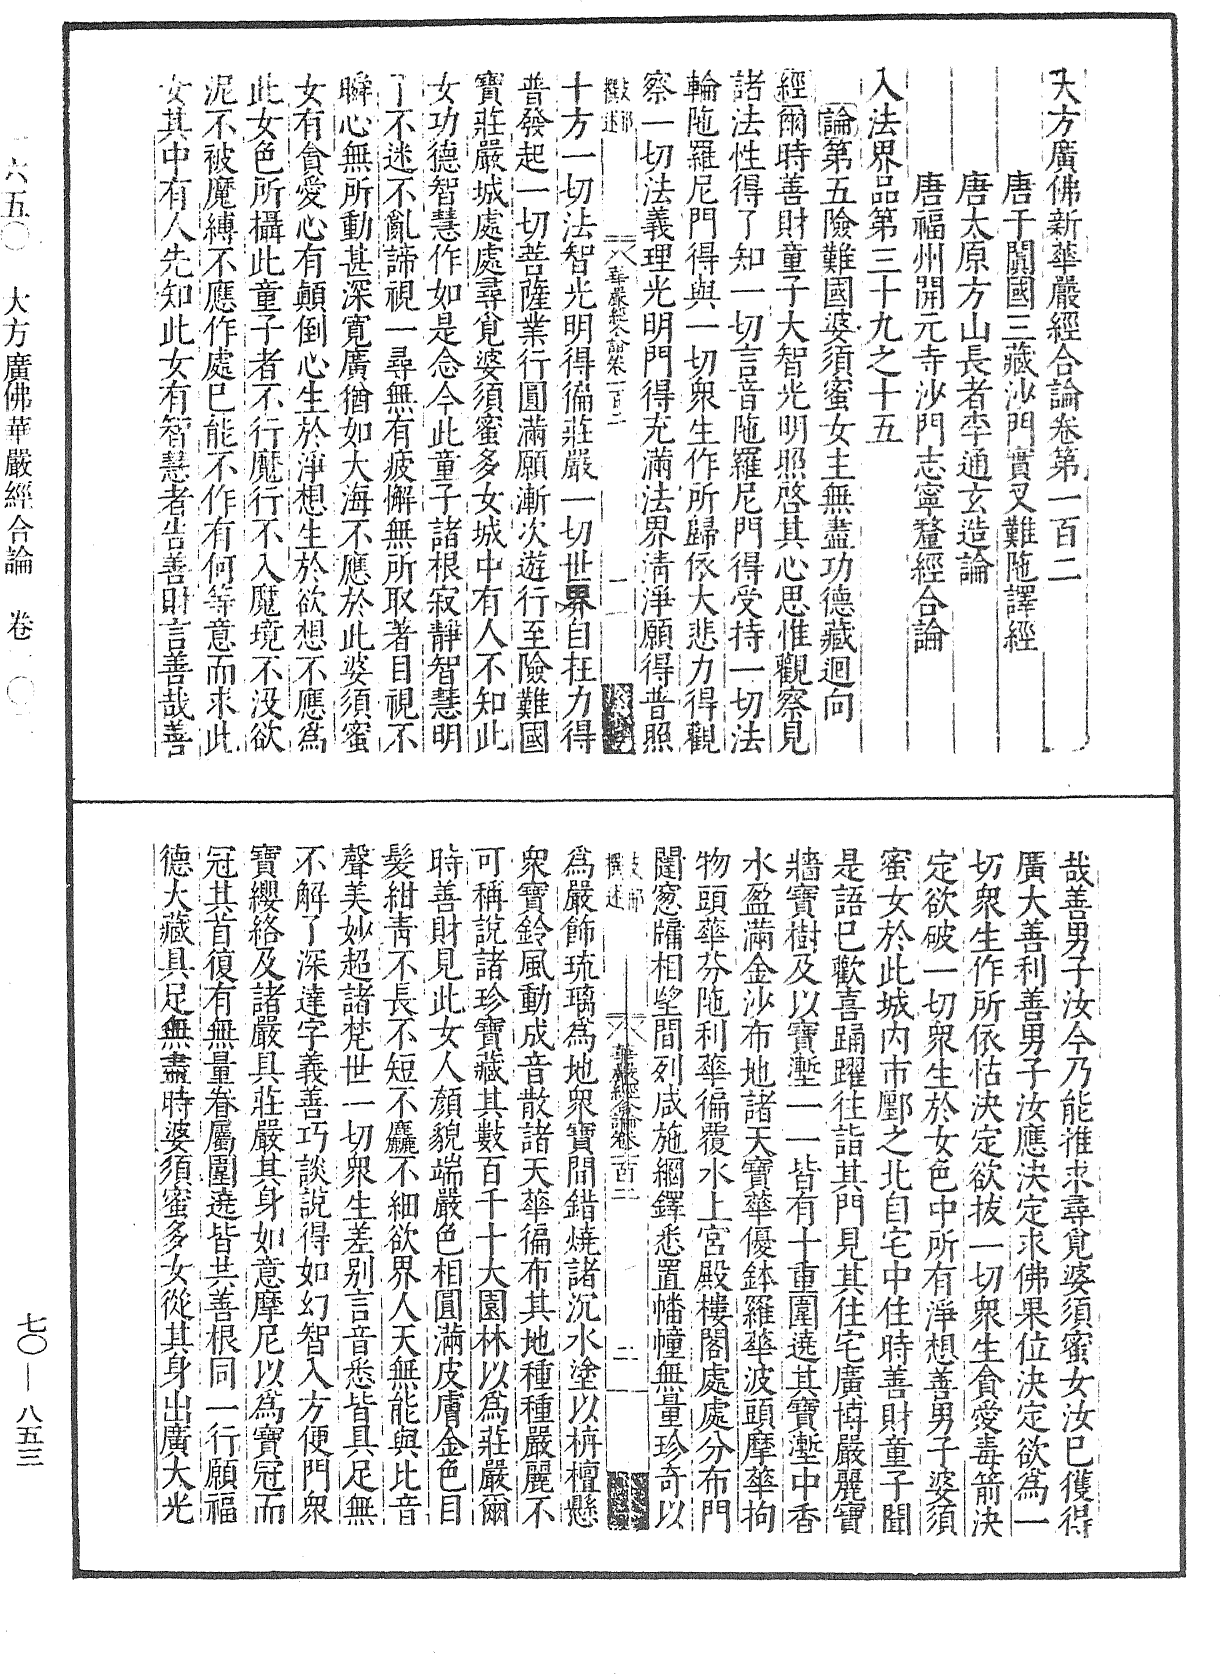 大方廣佛新華嚴經合論卷第一百二
唐于闐國三藏沙門實叉難陁譯經
唐太原方山長者李通玄造論
唐福州開元寺沙門志寧釐經合論
入法界品第三十九之十五
論第五險難國婆須蜜女主無盡功德藏迴向
經爾時善財童子大智光明照啓其心思惟觀察見
諸法性得了知一切言音陁羅尼門得受持一切法
輪陁羅尼門得與一切衆生作所歸依大悲力得觀
察一切法義理光明門得充滿法界清淨願得普照
支那
撰述
華嚴經合論卷一百二
一
十方一切法智光明得徧莊嚴一切世界自在力得
普發起一切菩薩業行圓滿願漸次遊行至險難國
寶莊嚴城處處尋覓婆須蜜多女城中有人不知此
女功德智慧作如是念今此童子諸根寂靜智慧明
了不迷不亂諦視一尋無有疲懈無所取著目視不
瞬心無所動甚深寬廣猶如大海不應於此婆須蜜
女有貪愛心有顛倒心生於淨想生於欲想不應爲
此女色所攝此童子者不行魔行不入魔境不没欲
泥不被魔縛不應作處已能不作有何等意而求此
女其中有人先知此女有智慧者告善財言善哉善
哉善男子汝今乃能推求尋覓婆須蜜女汝已獲得
廣大善利善男子汝應決定求佛果位決定欲爲一
切衆生作所依怙決定欲拔一切衆生貪愛毒箭決
定欲破一切衆生於女色中所有淨想善男子婆須
蜜女於此城内市鄽之北自宅中住時善財童子聞
是語已歡喜踊躍往詣其門見其住宅廣博嚴麗寶
牆寶樹及以寶塹一一皆有十重圍遶其寶塹中香
水盈滿金沙布地諸天寶華優鉢羅華波頭摩華拘
物頭華芬陁利華徧覆水上宮殿樓閣處處分布門
闥窻牖相望間列咸施網鐸悉置幡幢無量珍奇以
支那
撰述
華嚴經合論卷一百二
二
爲嚴飾琉璃爲地衆寶間錯燒諸沉水塗以栴檀懸
衆寶鈴風動成音散諸天華徧布其地種種嚴麗不
可稱說諸珍寶藏其數百千十大園林以爲莊嚴爾
時善財見此女人顏貌端嚴色相圓滿皮膚金色目
髮紺青不長不短不麤不細欲界人天無能與比音
聲美妙超諸梵世一切衆生差别言音悉皆具足無
不解了深達字義善巧談說得如幻智入方便門衆
寶纓絡及諸嚴具莊嚴其身如意摩尼以爲寶冠而
冠其首復有無量眷屬圍遶皆共善根同一行願福
德大藏具足無盡時婆須蜜多女從其身出廣大光
一六五〇 大方廣佛華嚴經合論 卷一〇二
七〇—八五三